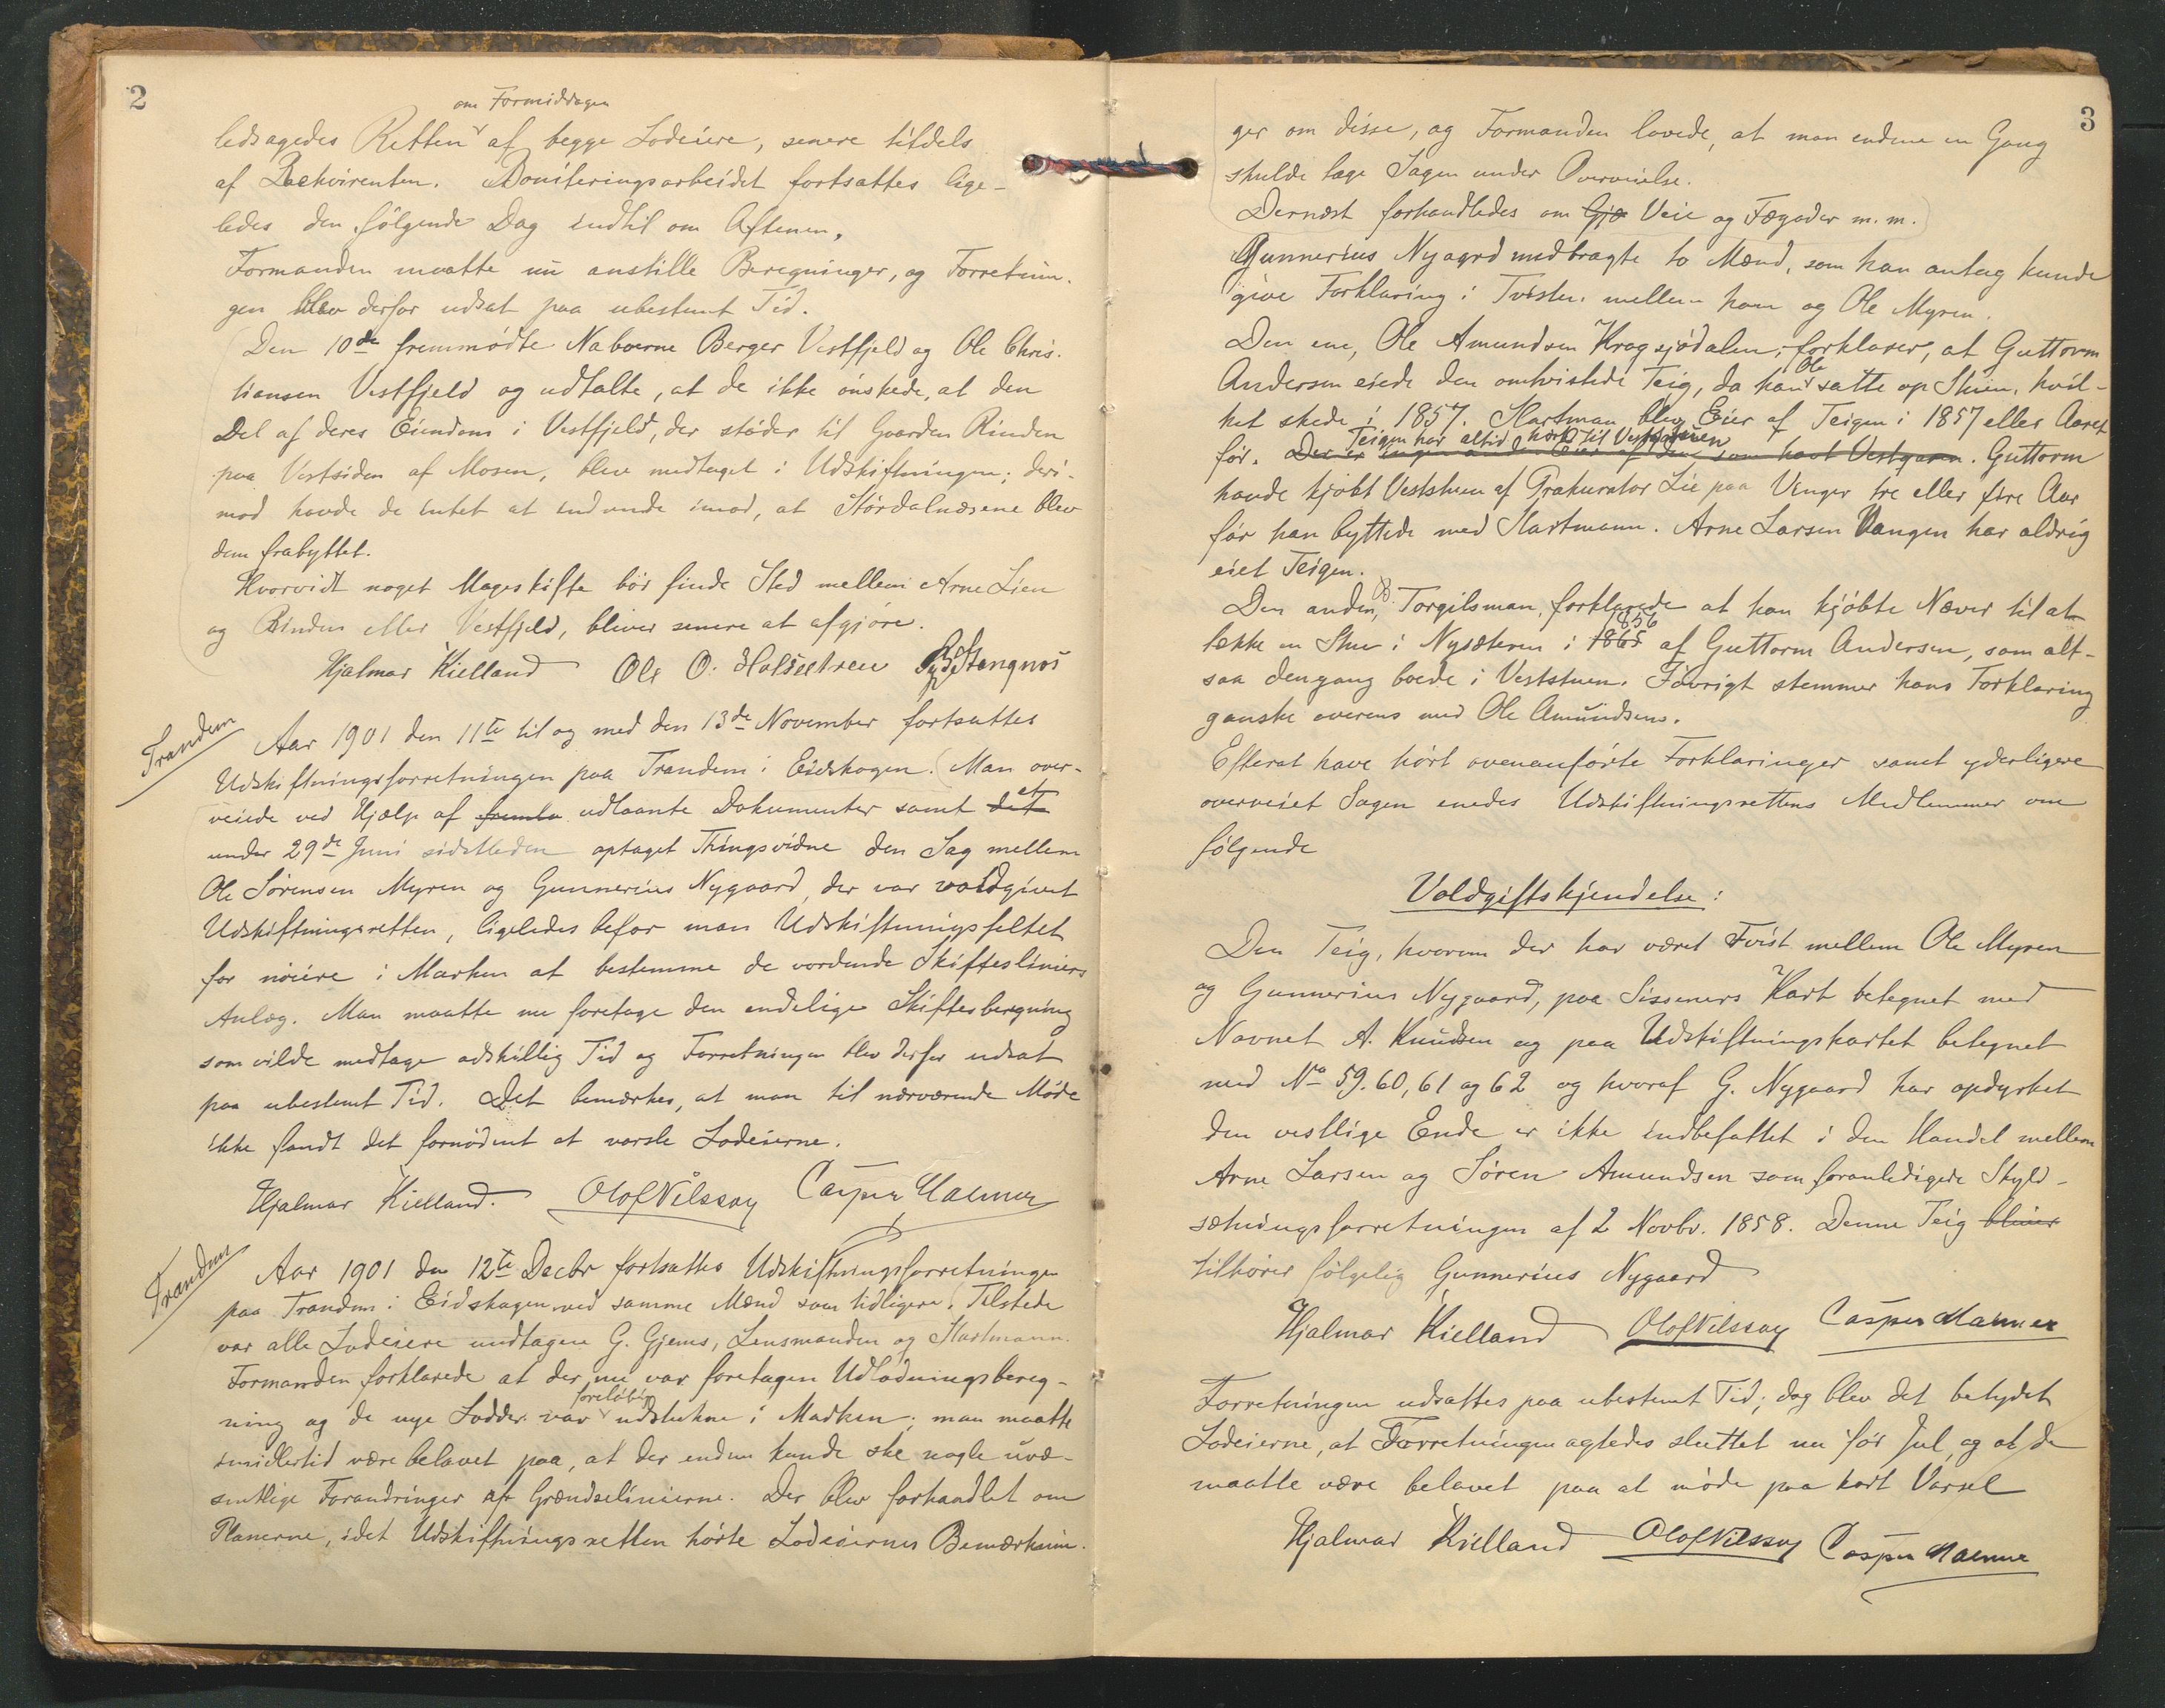 2
om Formiddagen
ledsagedes Retten af begge Lodeiere, senere tildels
af Rekvirenten. Boniteringsarbeidet fortsattes lige-
ledes den følgende Dag indtil om Aftenen.
Formanden maatte nu anstille Beregninger, og Forretnin-
gen blev derfor udsat paa ubestemt Tid.
Den 10de fremmødte Naboerne Berger Vestfjeld og Ole Chris-
tiansen Vestfjeld og udtalte, at de ikke ønskede, at den
Del af deres Eiendom i Vestfjeld, der støder til Gaarden Rinden
paa Vestsiden af Mosen, blev medtaget i Udskiftningen; deri-
mod havde de intet at indvende imod, at Størdalnæsene blev
dem frabyttet.
Hvorvidt noget Mageskifte bør finde Sted mellem Arne Lien
og Rinden eller Vestfjeld, bliver senere at afgjøre.
Hjalmar Kielland Ole O. Holsætren Stengnes
Trandem
Aar 1901 den 11te til og med den 13de November fortsattes
Udskiftningsforretningen paa Trandem i Eidskogen. (Man over-
veiede ved Hjælp af fremla udlaante Dokumenter samt det et
under 29de Juni sidstleden optaget Thingsvidne den Sag mellem
Ole Sørensen Myren og Gunnerius Nygaard, der var voldgivet
Udskiftningsretten, ligeledes befor man Udskiftningsfeltet
for nøiere i Marken at bestemme de vordende Skiftesliniers
Anlæg. Man maatte nu foretage den endelige Skiftesberegning
som vilde medtage adskillig Tid og Forretningen blev derfor udsat
paa ubestemt Tid. Det bemærkes, at man til nærværende Møde
ikke fandt det fornødent at varsle Lodeierne.
Hjalmar Kielland. Olof Nilsson Casper Malmer
Trandem
Aar 1901 den 12te Decbr fortsattes Udskiftningsforretningen
paa Trandem i Eidskogen ved samme Mænd som tidligere. Tilstede
var alle Lodeiere undtagen G. Gjems, Lensmanden og Hartmann.
Formanden forklarede at der nu var foretagen Udlodningsbereg-
foreløbig
ning og de nye Lodder var udstukne i Marken; man maatte
imidlertid være belavet paa, at der endnu kunde ske nogle uvæ-
sentlige Forandringer af Grændselinierne. Der blev forhandlet om
Planerne, idet Udskiftningsretten hørte Lodeiernes Bemærknin-
3
ger om disse, og Formanden lovede, at man endnu en Gang
skulde tage Sagen under Overveielse.
Dernæst forhandledes om Gjø Veie og Fægader m. m.)
Gunnerius Nyaard medbragte to Mænd, som han antog kunde
give Forklaring i Tvisten mellem ham og Ole Myren.
Den ene, Ole Amundsen Kragsjødalen, forklarer, at Guttorm
Ole
Andersen eiede den omtvistede Teig, da han satte op Stuen, hvil-
ket skede i 1857. Hartman blev Eier af Teigen i 1857 eller Aaret
Teigen har altid hørt til Vestgaren
før. Der er ingen anden Eier af den som havt Vestgaren. Guttorm
havde kjøbt Veststuen af Prokurator Lie paa Vinger tre eller fire Aar
før han byttede med Hartmann. Arne Larsen Vangen har aldrig
eiet Teigen.
Den anden, Torgilsman, forklarede at han kjøbte Næver til at
1856
tække en Stue i Nysæteren i 1865 af Guttorm Andersen, som alt-
saa dengang boede i Veststuen. Iøvrigt stemmer hans Forklaring
ganske overens med Ole Amundsens.
Efterat have hørt ovenanførte Forklaringer samt yderligere
overveiet Sagen enedes Udskiftningsrettens Medlemmer om
følgende
Voldgiftskjendelse:
Den Teig, hvorom der har været Tvist mellem Ole Myren
og Gunnerius Nygaard, paa Sisseners Kart betegnet med
Navnet A. Knudsen og paa Udskiftningskartet betegnet
med No 59. 60, 61 og 62 og hvoraf G. Nygaard har opdyrket
den vestlige Ende er ikke indbefattet i den Handel mellem
Arne Larsen og Søren Amundsen som foranledigede Skyld-
sætningsforretningen af 2 Novbr. 1858. Denne Teig bliver
tilhører følgelig Gunnerius Nygaard
Hjalmar Kielland Olof Nilsson Casper Malmer
Forretningen udsattes paa ubestemt Tid; dog blev det betydet
Lodeierne, at Forretningen agtedes sluttet nu før Jul, og at de
maatte være belavet paa at møde paa kort Varsel
Hjalmar Kielland Olof Nilsson Casper Malmer